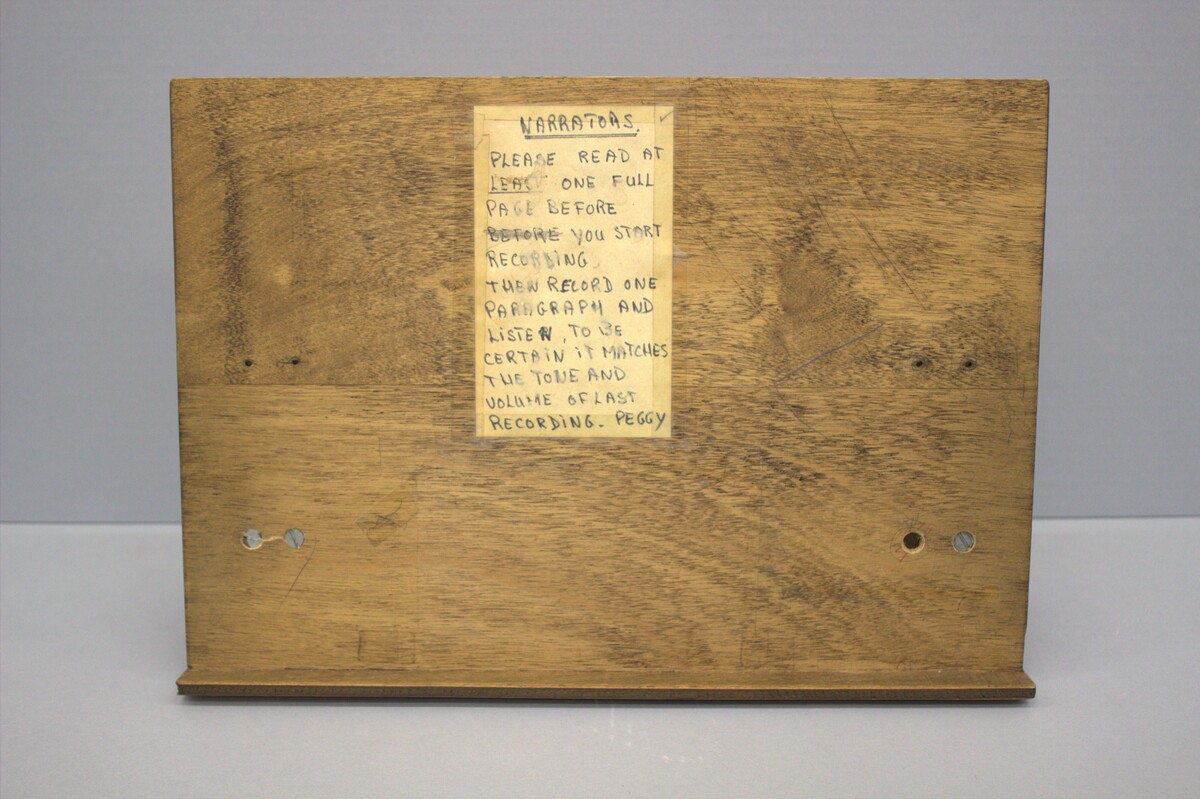 NARRATORS.
PLEASE READ AT
LEAST ONE FULL
PAGE BEFORE
BEFORE YOU START
RECORDING
THEN RECORD ONE
PARAGRAPH AND
LISTEN, TO BE
CERTAIN iT MATCHES
THE TONE AND
VOLUME OF LAST
RECORDING. PEGGY